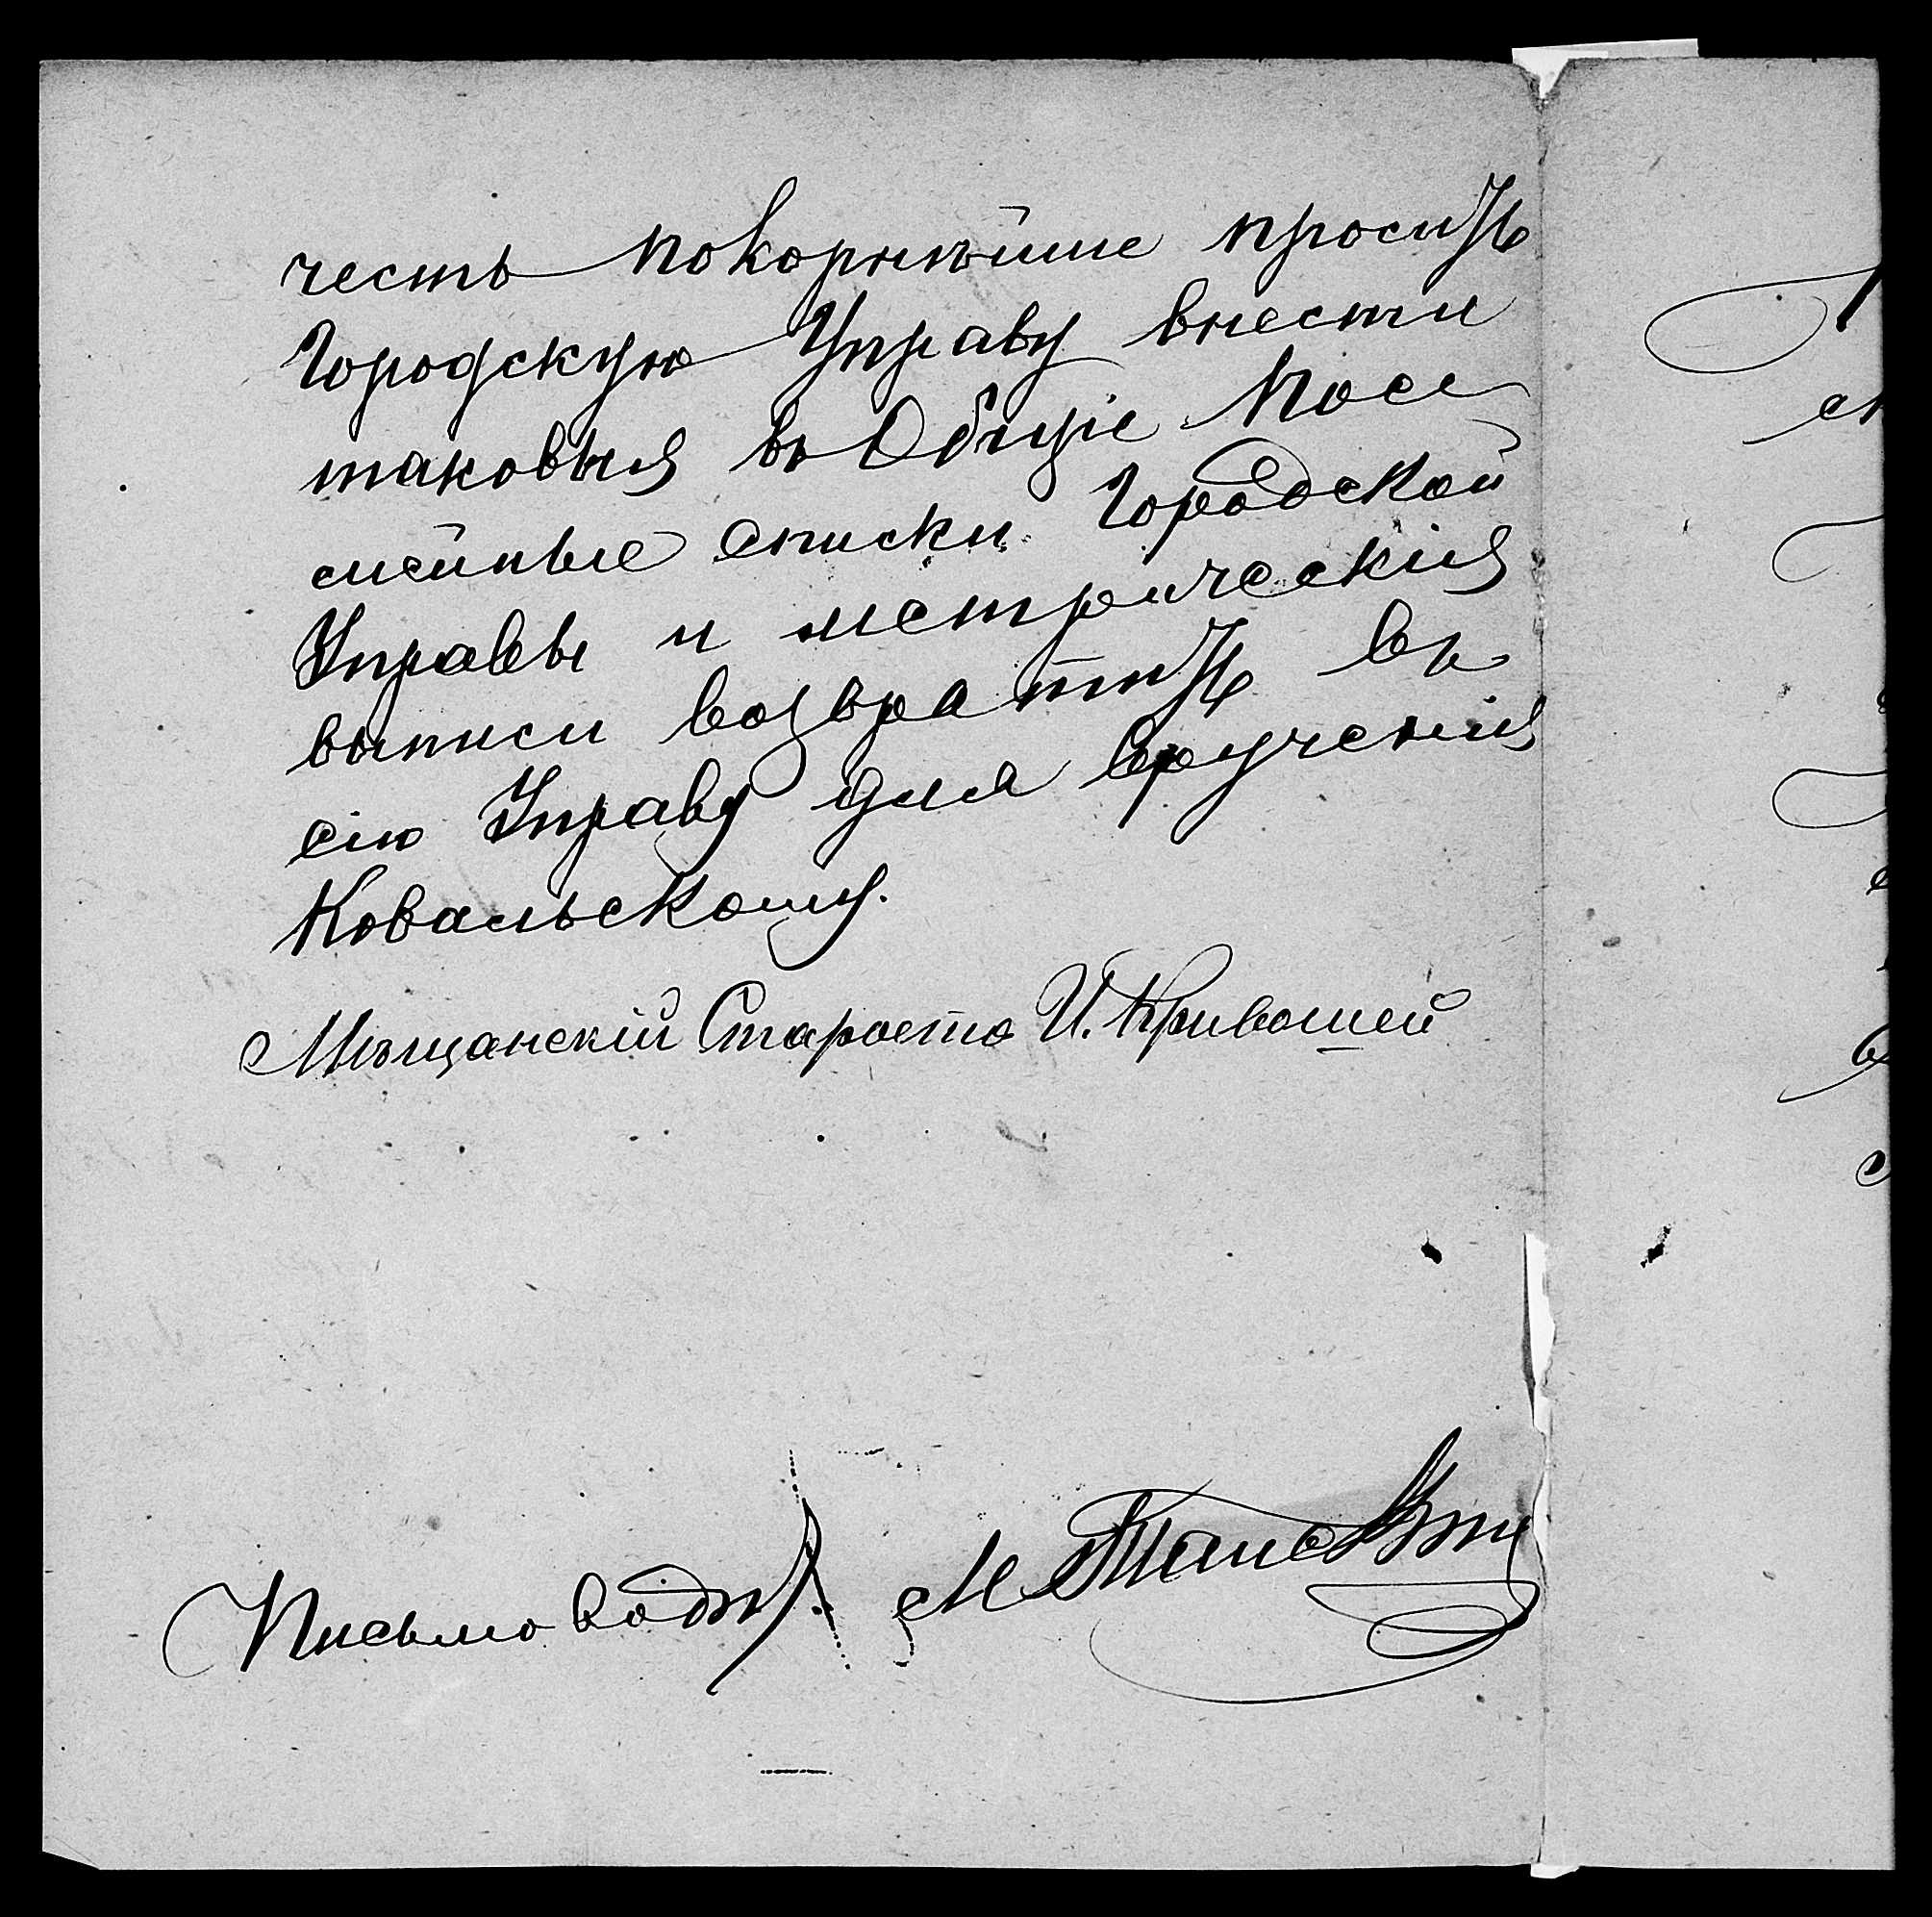 честь покорнѣйше просить
Городскую Управу внести
таковыя въ Общіе Посе
мейные списки Городской
Управы и метрическія
выписи возвратить въ
сію Управу для врученія
Ковальскому.
Мѣщанскій Староста И. Кривошей
Письмоводит. М